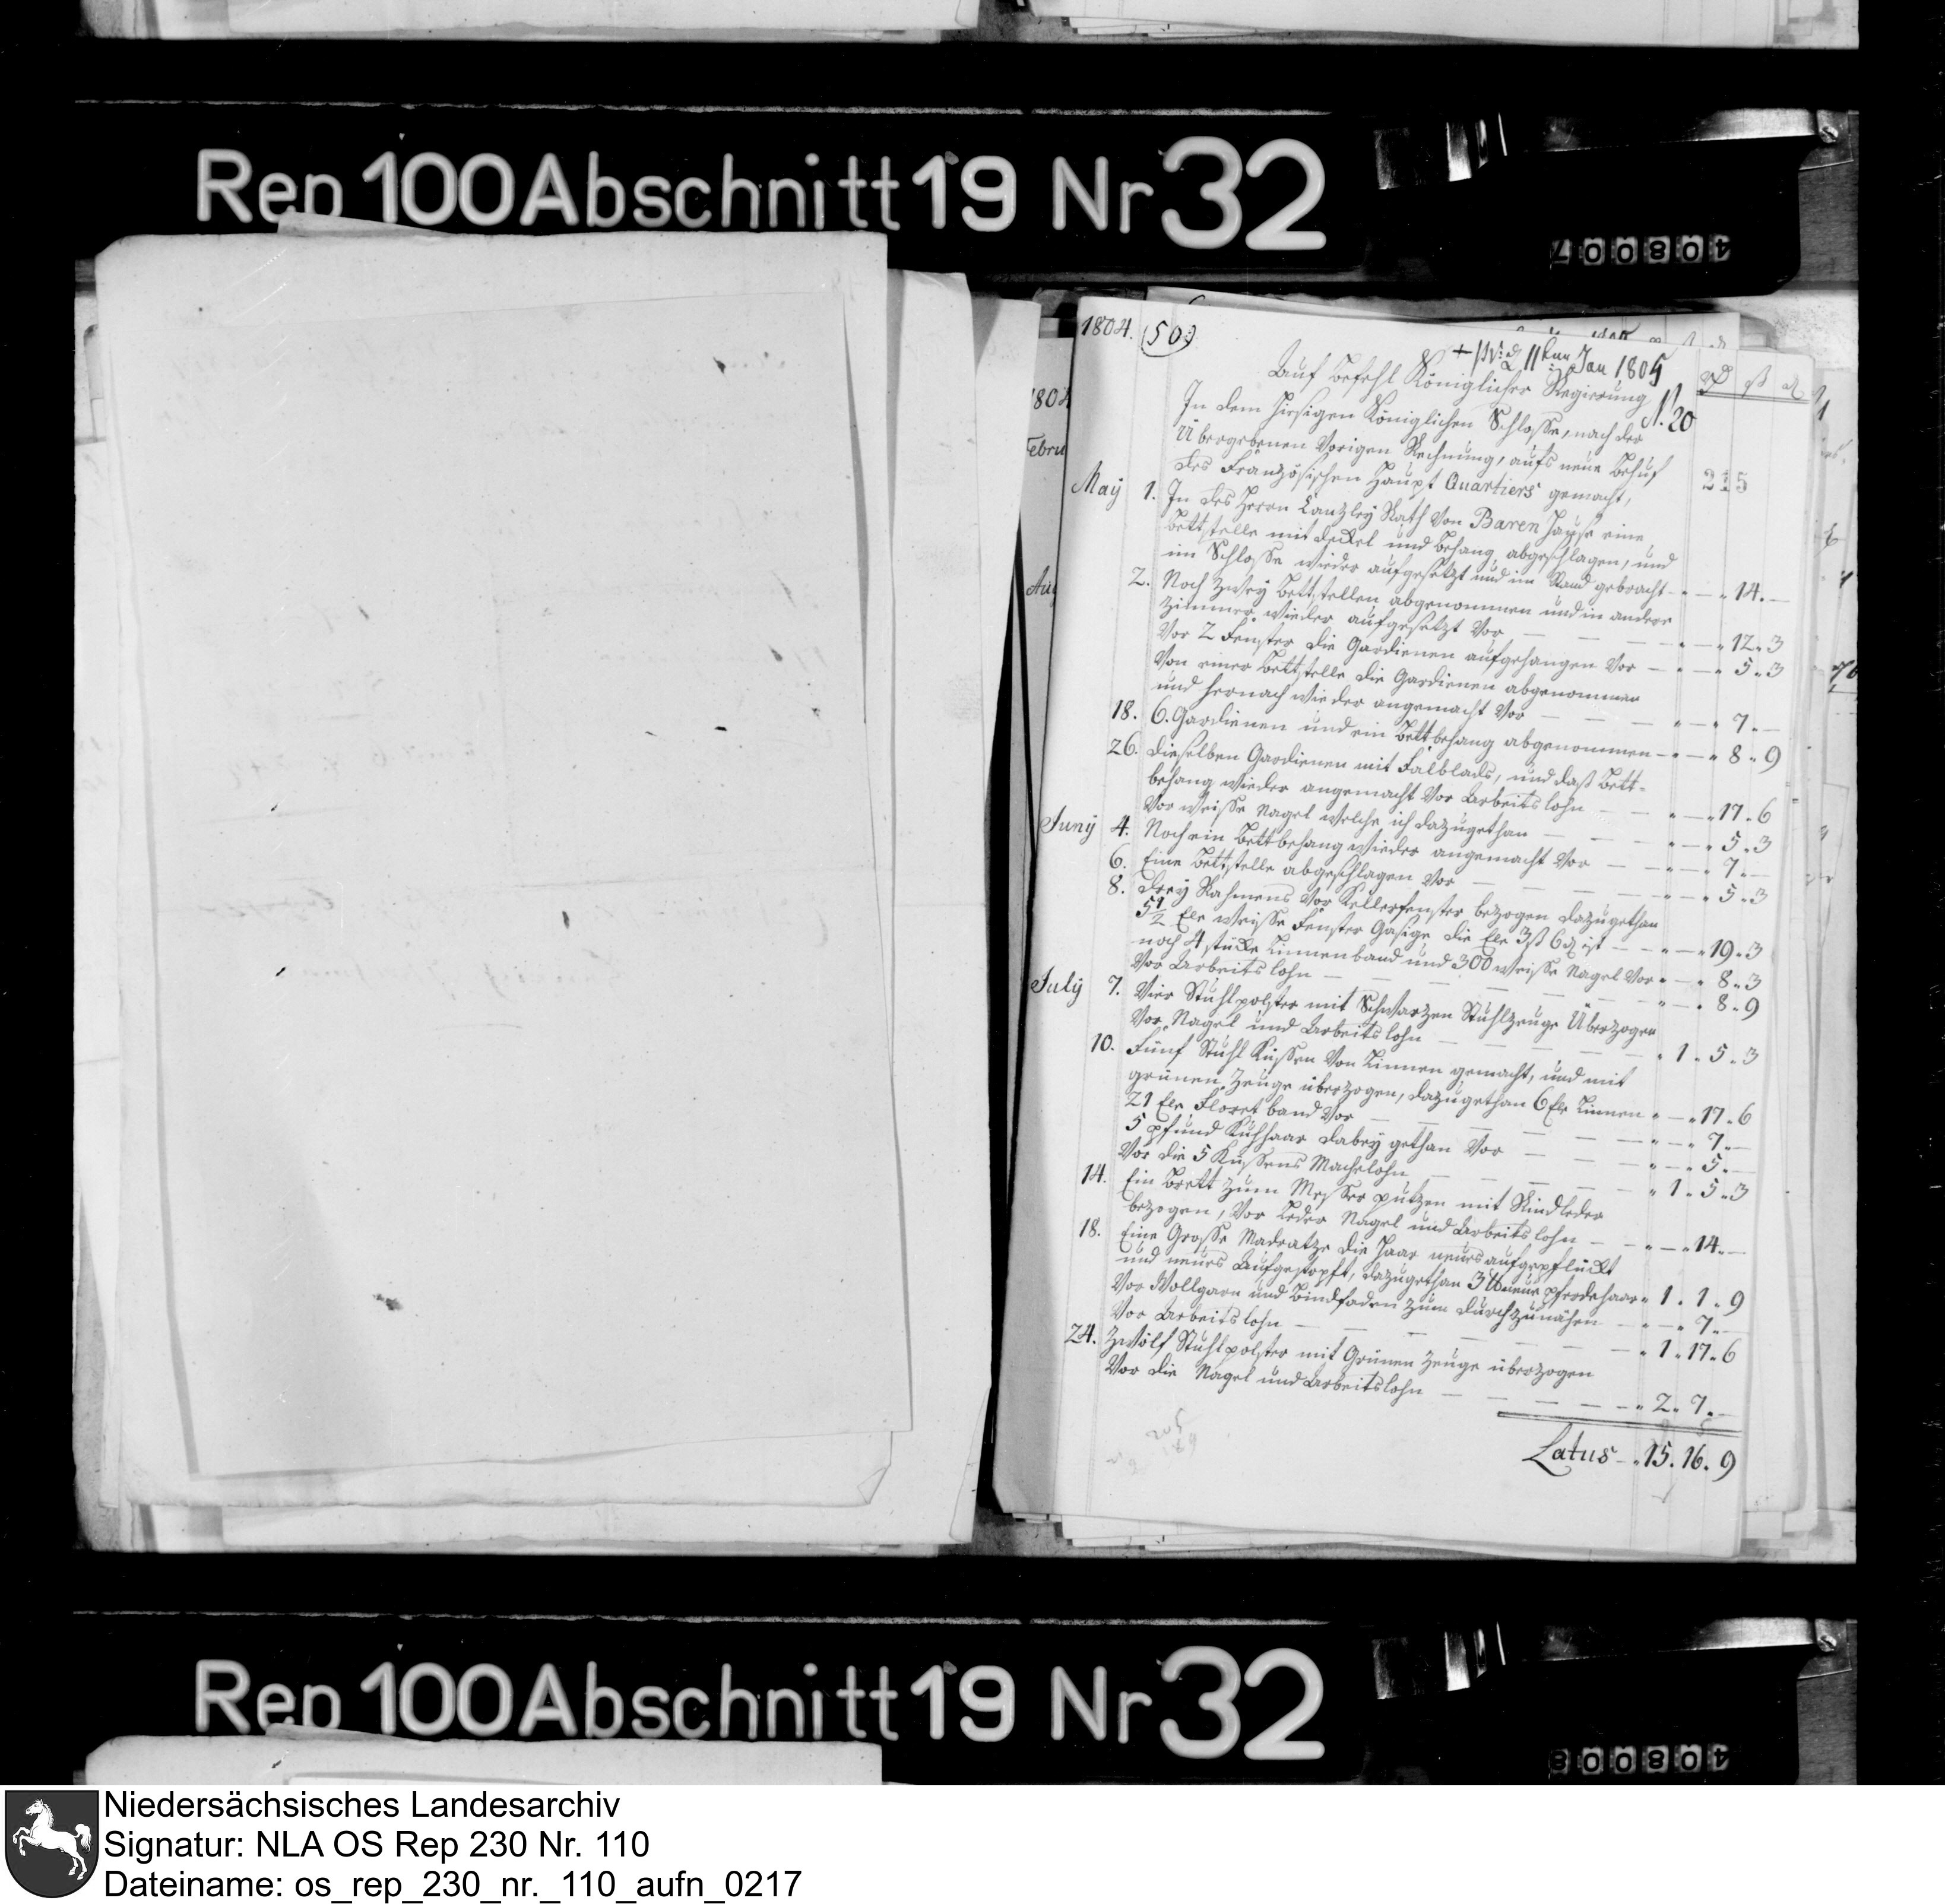 Rep 100 Abschnitt 19 Nr 32
408007
1804. (50)
den 11ten Jan 1805
Auf Befehl Königlicher Regierung
N. 20
In dem hiesigen Königlichen Schlosse, nach der
übergebenen Vorigen Rechnung, aufs neue Behuf
des Französischen Haupt Quartiers gemacht,
215
May 1. In des Herrn Canzley Rath von Baren Hause eine
Bettstelle mit Deckel und Behang abgeschlagen, und
im Schlosse wieder aufgesetzt und im Stand gebracht - " — " 14. —
2. Noch zwey Bettstellen abgenommen und in andere
Zimmer wieder aufgesetzt Vor — — — " — " 12 " 3
Vor 2 Fenster die Gardienen aufgehangen Vor — " — " 5 " 3
Von einer Bettstelle die Gardienen abgenommen
und hernach wieder angemacht Vor — — — " — " 7 " —
18. 6. Gardienen und ein Bettbehang abgenommen — " — " 8 " 9
26. Dieselben Gardienen mit Falblads, und daß Bett-
behang wieder angemacht Vor Arbeitslohn — — " — " 17 " 6
Vor weisse Nagel welche ich dazugethan — — — " — " 5 " 3
Juny 4. Noch ein Bettbehang wieder angemacht Vor — — " — " 7 " —
6. Eine Bettstelle abgeschlagen Vor — — — — " — " 5 " 3
8. Drey Rahmens Vor Kellerfenster bezogen dazugethan
5 1/2 Ele weisse Fenster Gasige die Ele 3 ß 6 d ist — " — " 19 " 3
noch 4 stücke Linnenband und 300 weisse Nagel Vor " — " 8 " 3
Vor Arbeitslohn — — — — — — " — " 8 " 9
July 7. Vier Stuhlpolster mit Schwarzen Stuhlzeuge Überzogen
Vor Nagel und Arbeitslohn — — — — " 1 " 5 " 3
10. Fünf Stuhl Küssen Von Linnen gemacht, und mit
grünen Zeuge überzogen, dazugethan 6 Ele Linnen " — " 17 " 6
21 Ele Floretband Vor — — — — — " — " 7 " —
5 Pfund Kuhhaar dabey gethan Vor — — — " — " 5 " —
Vor die 5 Küssens Machelohn — — — — " 1 " 5 " 3
14. Ein Brett zum Messer putzen mit Rindleder
bezogen, Vor Leder Nagel und Arbeitslohn — — " — " 14 " —
18. Eine Grosse Madratze die Haar neues aufgepflückt
und neues Aufgestopft, dazugethan 3 ℔ neue Pferdehaar " 1 " 1 " 9
Vor Wollgarn und Bindfaden zum durchzunähen — " — " 7 " —
Vor Arbeitslohn — — — — — — " 1 " 17 " 6
24. Zwölf Stuhlpolster mit Grünen Zeuge überzogen
Vor die Nagel und Arbeitslohn — — — — " 2 " 7 " —
Latus — " 15. 16. 9
1804
Febru
Aug
Rep 100 Abschnitt 19 Nr 32
408008
Niedersächsisches Landesarchiv
Signatur: NLA OS Rep 230 Nr. 110
Dateiname: os_rep_230_nr._110_aufn_0217